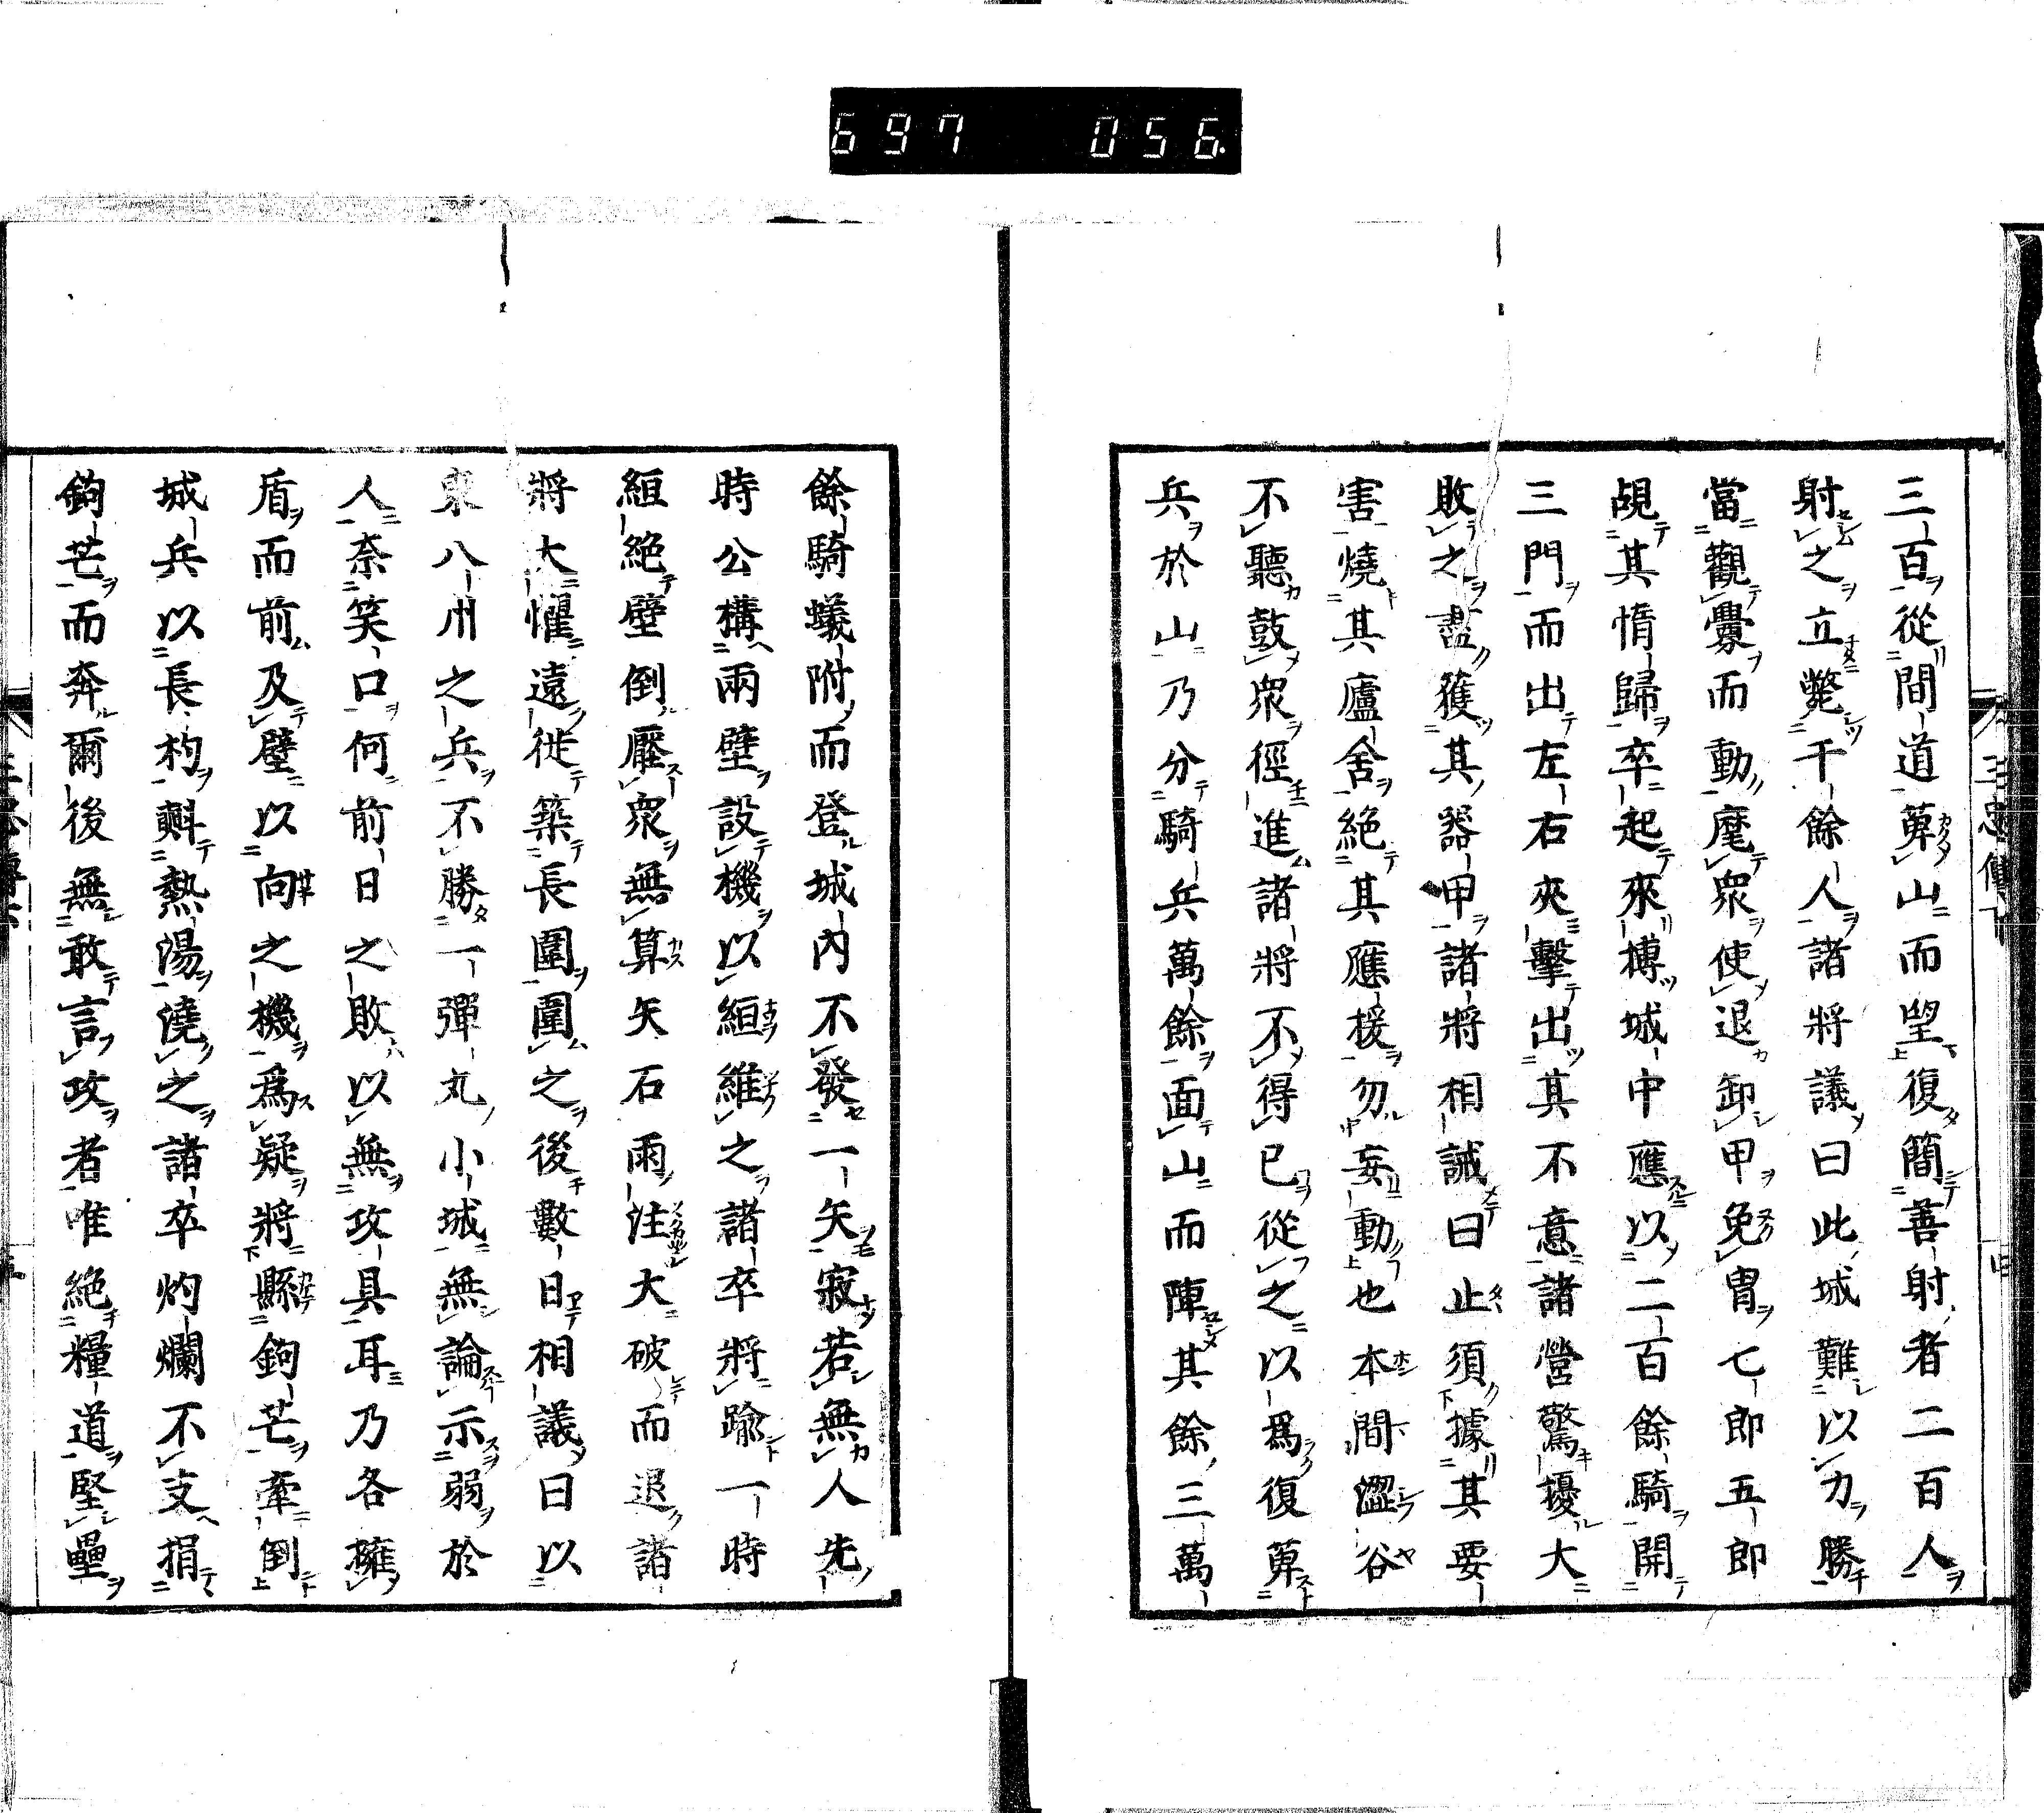 697 056
三百從間道萆山而望復簡善射者二百人
射之立斃千餘人諸將議曰此城難以力勝
當觀釁而動麾衆使退卸甲免胄七郎五郎
覘其惰歸卒起來搏城中應以二百餘騎開
三門而出左右夾擊出其不意諸營驚擾大
敗之盡獲其器甲諸將相誡曰止須據其要
害燒其廬舍絶其應援勿妄動也本間澀谷
不聽鼓衆徑進諸將不得已從之以爲復萆
兵於山乃分騎兵萬餘面山而陣其餘三萬
餘騎蟻附而登城內不發一矢寂若無人先
時公構兩壁設機以絙維之諸卒將踰一時
絙絶壁倒壓衆無算矢石雨注大破而退諸
將大懼遠徙築長圍圍之後數日相議曰以
東八州之兵不勝一彈丸小城無論示弱於
人奈笑口何前日之敗以無攻具耳乃各擁
盾而前及壁以向之機爲疑將縣鉤芒牽倒
城兵以長杓㪺熱湯澆之諸卒灼爛不支捐
鉤芒而奔爾後無敢言攻者唯絶糧道堅壘